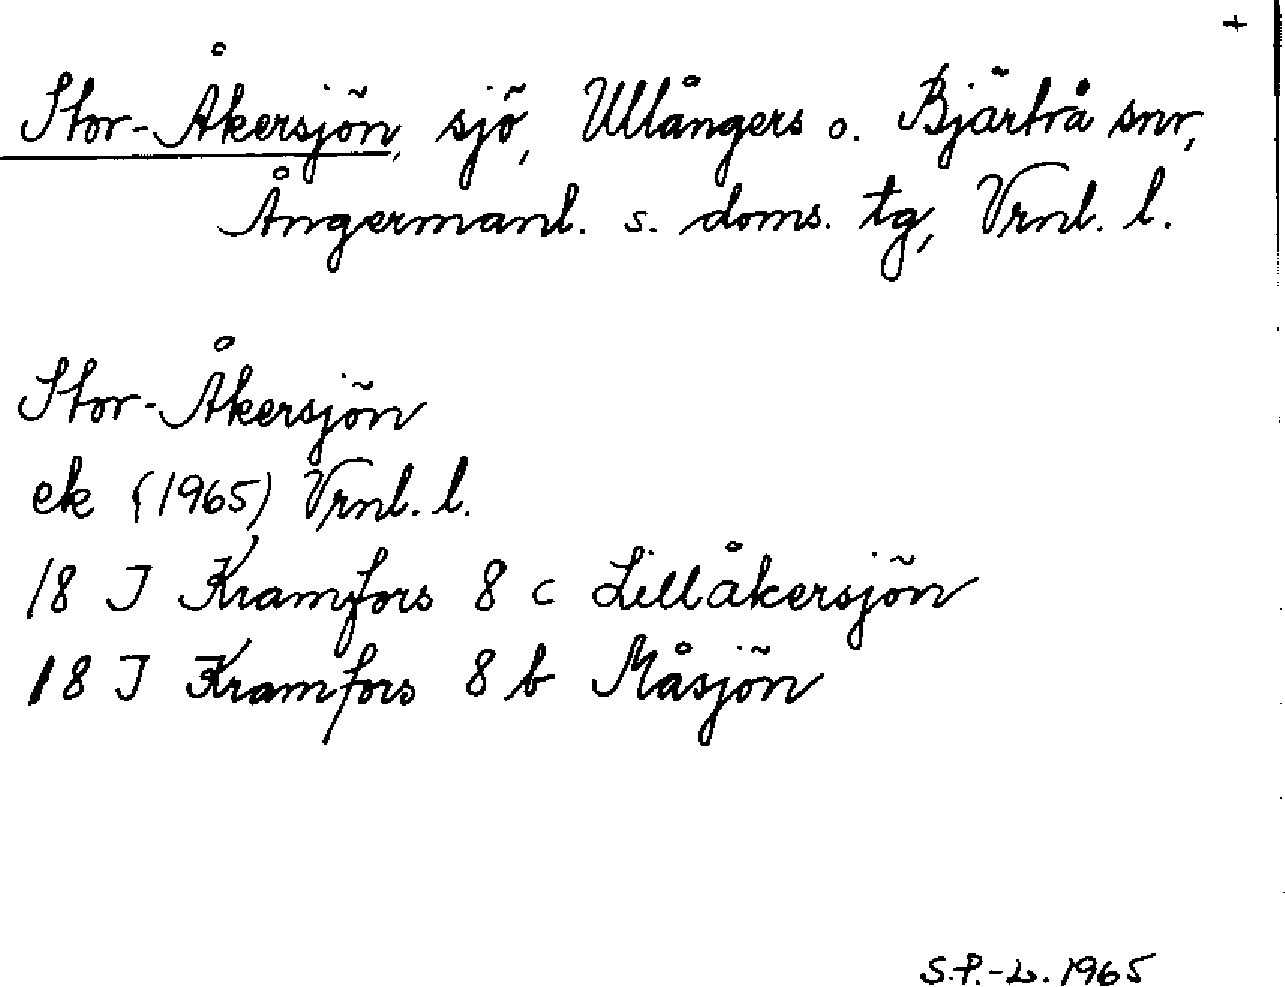 +
Stor-Åkersjön, sjö, Ullångers o. Bjärtrå snr,
Ångermanl. s. doms. tg, Vrnl. l.
Stor-Åkersjön
ek (1965) Vrnl. l.
18 J Kramfors 8 c Lillåkersjön
18 J Kramfors 8 b Måsjön
S.P.-L. 1965